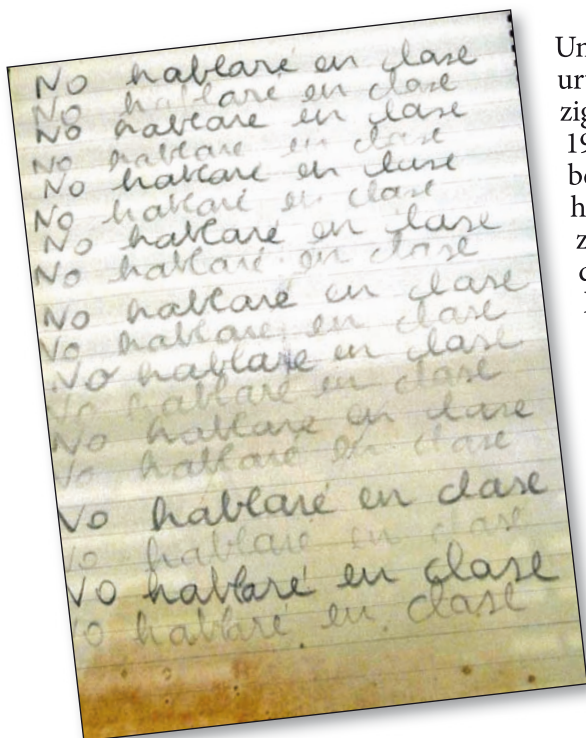 No hablaré en clase
No hablaré en clase
No hablaré en clase
No hablaré en clase
No hablaré en clase
No hablaré en clase
No hablaré en clase
No hablaré en clase
No hablaré en clase
No hablaré en clase
No hablaré en clase
No hablaré en clase
No hablaré en clase
No hablaré en clase
No hablaré en clase
No hablaré en clase
No hablaré en clase
No hablaré en clase
Un
ur
zig
19
be
h
z